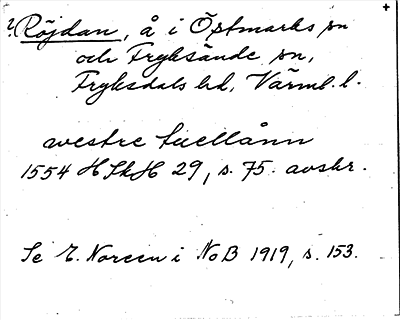 ? Röjdan, å i Östmarks sn
och Fryksände sn,
Fryksdals hd, Värml. l.
westre tuellånn
1554 HSkH 29, s. 75. avskr.
Se E. Noreen i NoB 1919, s. 153.